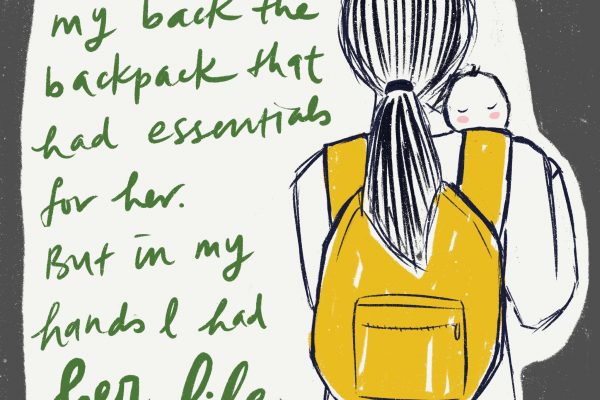 my back the
backpack that
had essentials
for her.
But in my
hands I had
her life